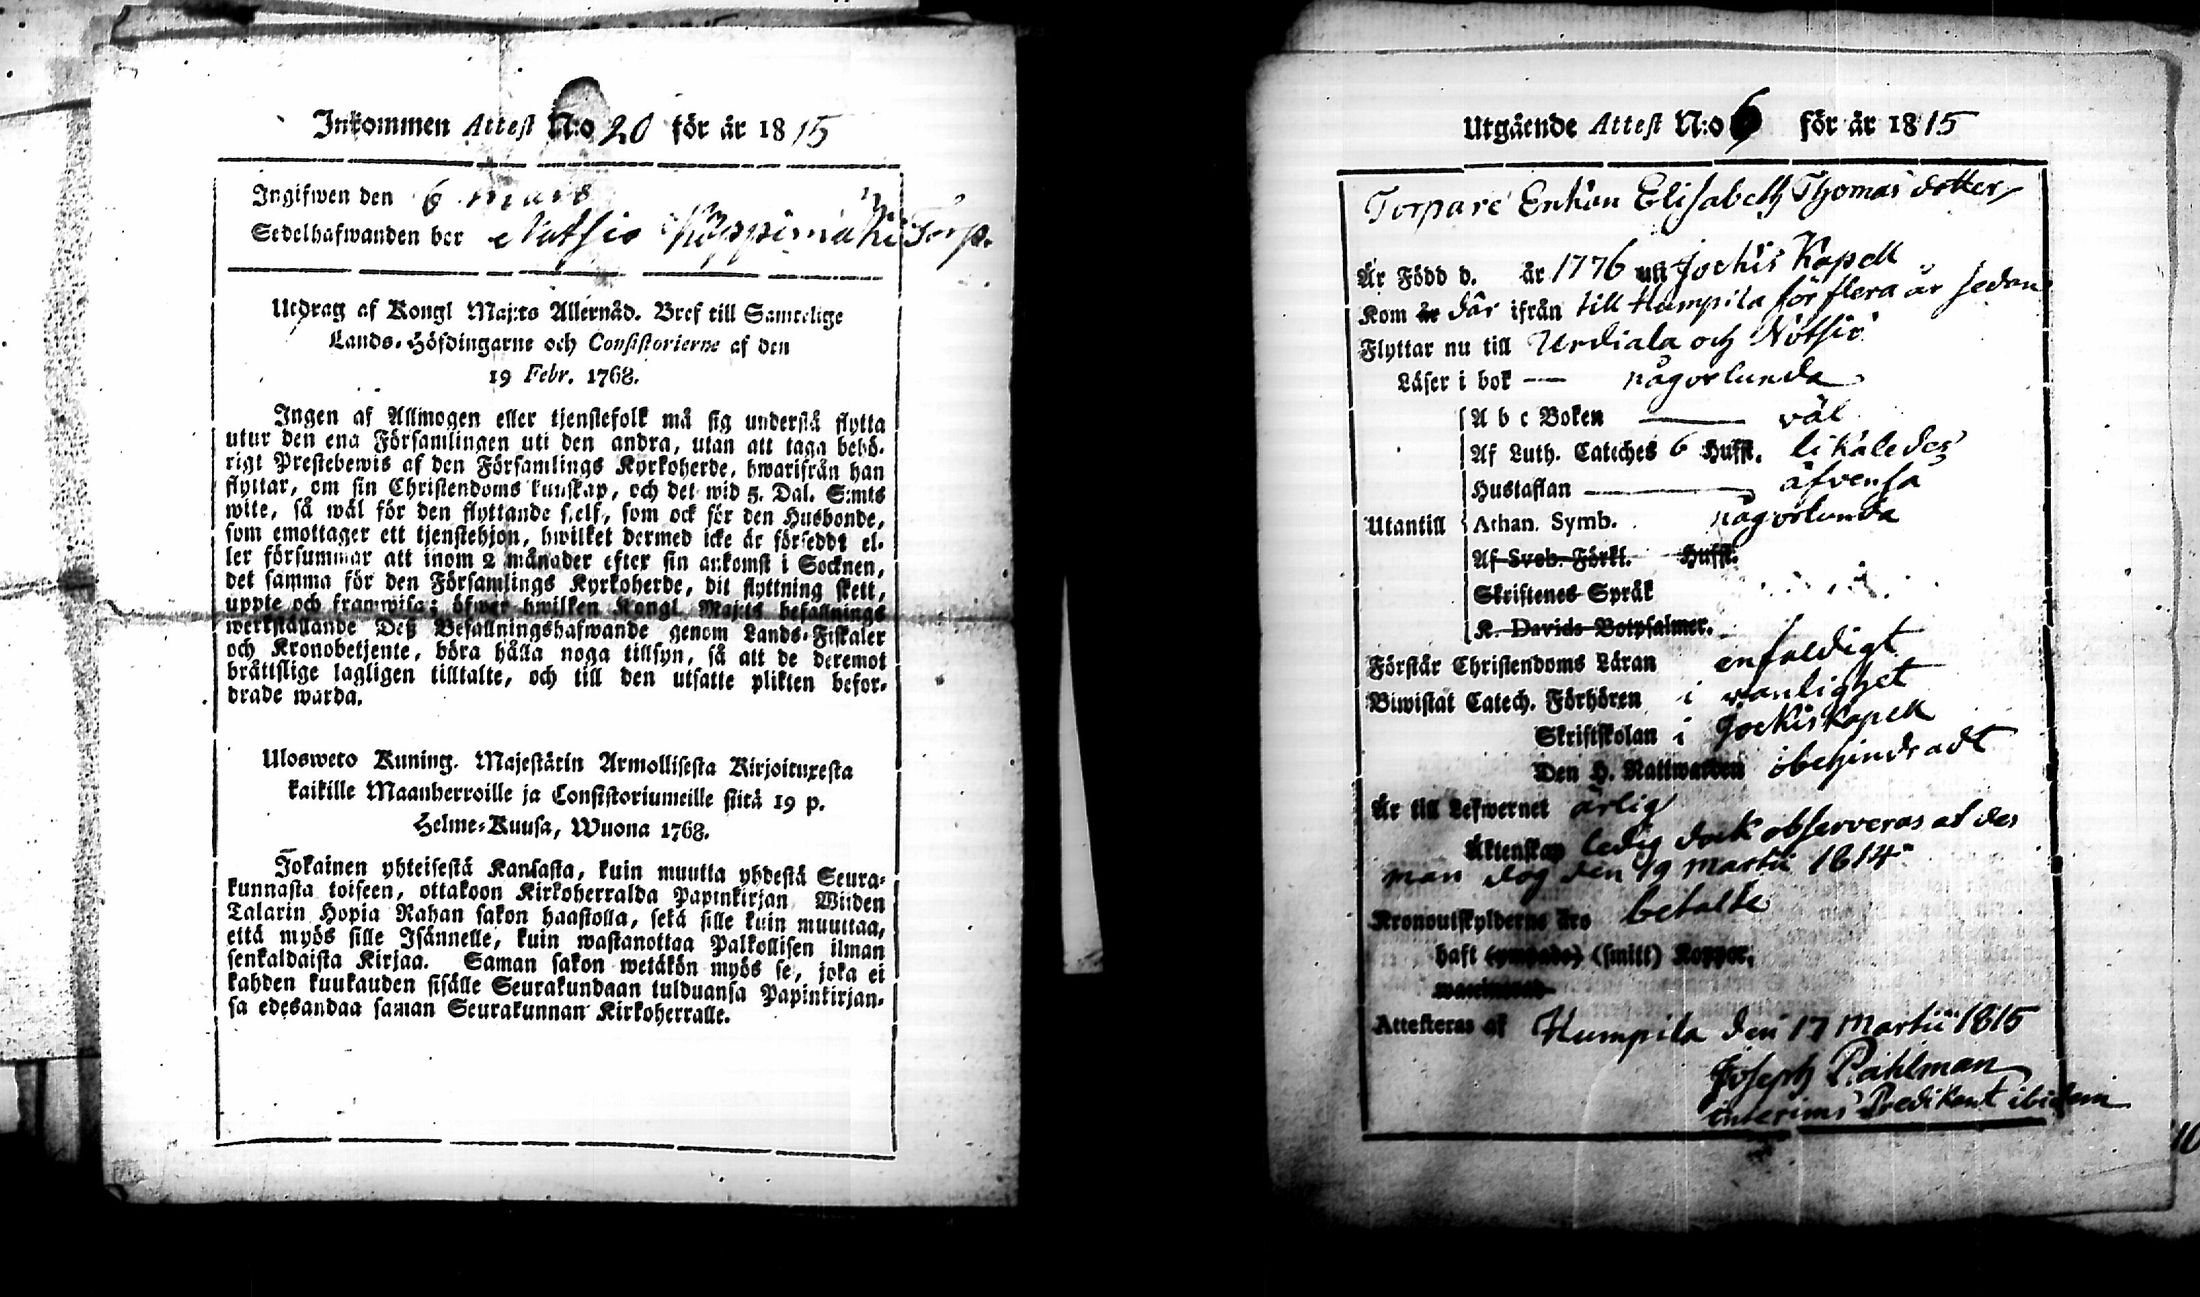 Inkommen Attest N:o 20 för år 1815
Ingifwen den 6 mars
Sedelhafwanden bor Nutsio Torp.
Utdrag af Kongl Maj:ts Allernåd. Bref till Samtelige
Lands-Höfdingarne och Consistorierne af den
19 Febr. 1768.
Ingen af Allmogen eller tjenstefolk må sig understå flytta
utur den ena Församlingen uti den andra, utan att taga behö-
rigt Prestebewis af den Församlings Kyrkoherde, hwarifrån han
flyttar, om sin Christendoms kunskap, och det wid 5. Dal. S:mts
wite, så wäl för den flyttande sielf, som ock för den Husbonde,
som emottager ett tjenstehjon, hwilket dermed icke är försedde el-
ler försummar att inom 2 månader efter sin ankomst i Socknen,
det samma för den Församlings Kyrkoherde, dit flyttning skett,
uppte och framwisa; öfwer hwilken Kongl. Maj:ts befallnings
werkställande Deß Befallningshafwande genom Lands-Fiskaler
och Kronobetjente, böra hålla noga tillsyn, så att de deremot
bråttslige lagligen tilltalte, och till den utsatte plikten befor-
drade warda.
Ulosweto Kuning. Majestätin Armollisesta Kirjoituxesta
kaikille Maanherroille ja Consistoriumeille siitä 19 p.
Helme-Kuusa, Wuona 1768.
Jokainen yhteisestä Kansasta, kuin muutta yhdestä Seura-
kunnasta toiseen, ottakoon Kirkoherralda Papinkirjan Wiiden
Talarin Hopia Rahan sakon haastolla, sekä sille kuin muuttaa,
että myös sille Isännelle, kuin wastanottaa Palkollisen ilman
senkaldaista Kirjaa. Saman sakon wetäkön myös se, joka ei
kahden kuukauden sisälle Seurakundaan tulduansa Papinkirjan-
sa edesandaa saman Seurakunnan Kirkoherralle.
Utgående Attest N:o 6 för år 1815
Torpare Enkan Elisabeth Thomas dotter
Är Född d. år 1776 uti Jockis Kapell
Kom där ifrån till Humpila för flera år sedan
Flyttar nu till Urdiala och Notsiö
Läser i bok — någorlunda
A b c Boken — väl
Af Luth. Cateches 6 Hufst. likaledes
Hustaflan — äfvenså
Utantill Athan. Symb. någorlunda
Af Sveb. Förkl. Hufst.
Skriftenes Språk
K. Davids Botpsalmer.
Förstår Christendoms Läran enfaldigt
Biwistat Catech. Förhören i vanlighet
Skriftskolan i Jockis kapell
Den H. Nattwarden obehindradt
Är till Lefwernet ärlig
Äktenskap ledig dock observeras at des
man dog den 19 Martii 1814
Kronoutskylderne äro betalte
haft (ympade) (smitt) Koppor,
waccinerad
Attesteras af Humpila den 17 Martii 1815
Joseph Påhlman
interims Predikant ibidem